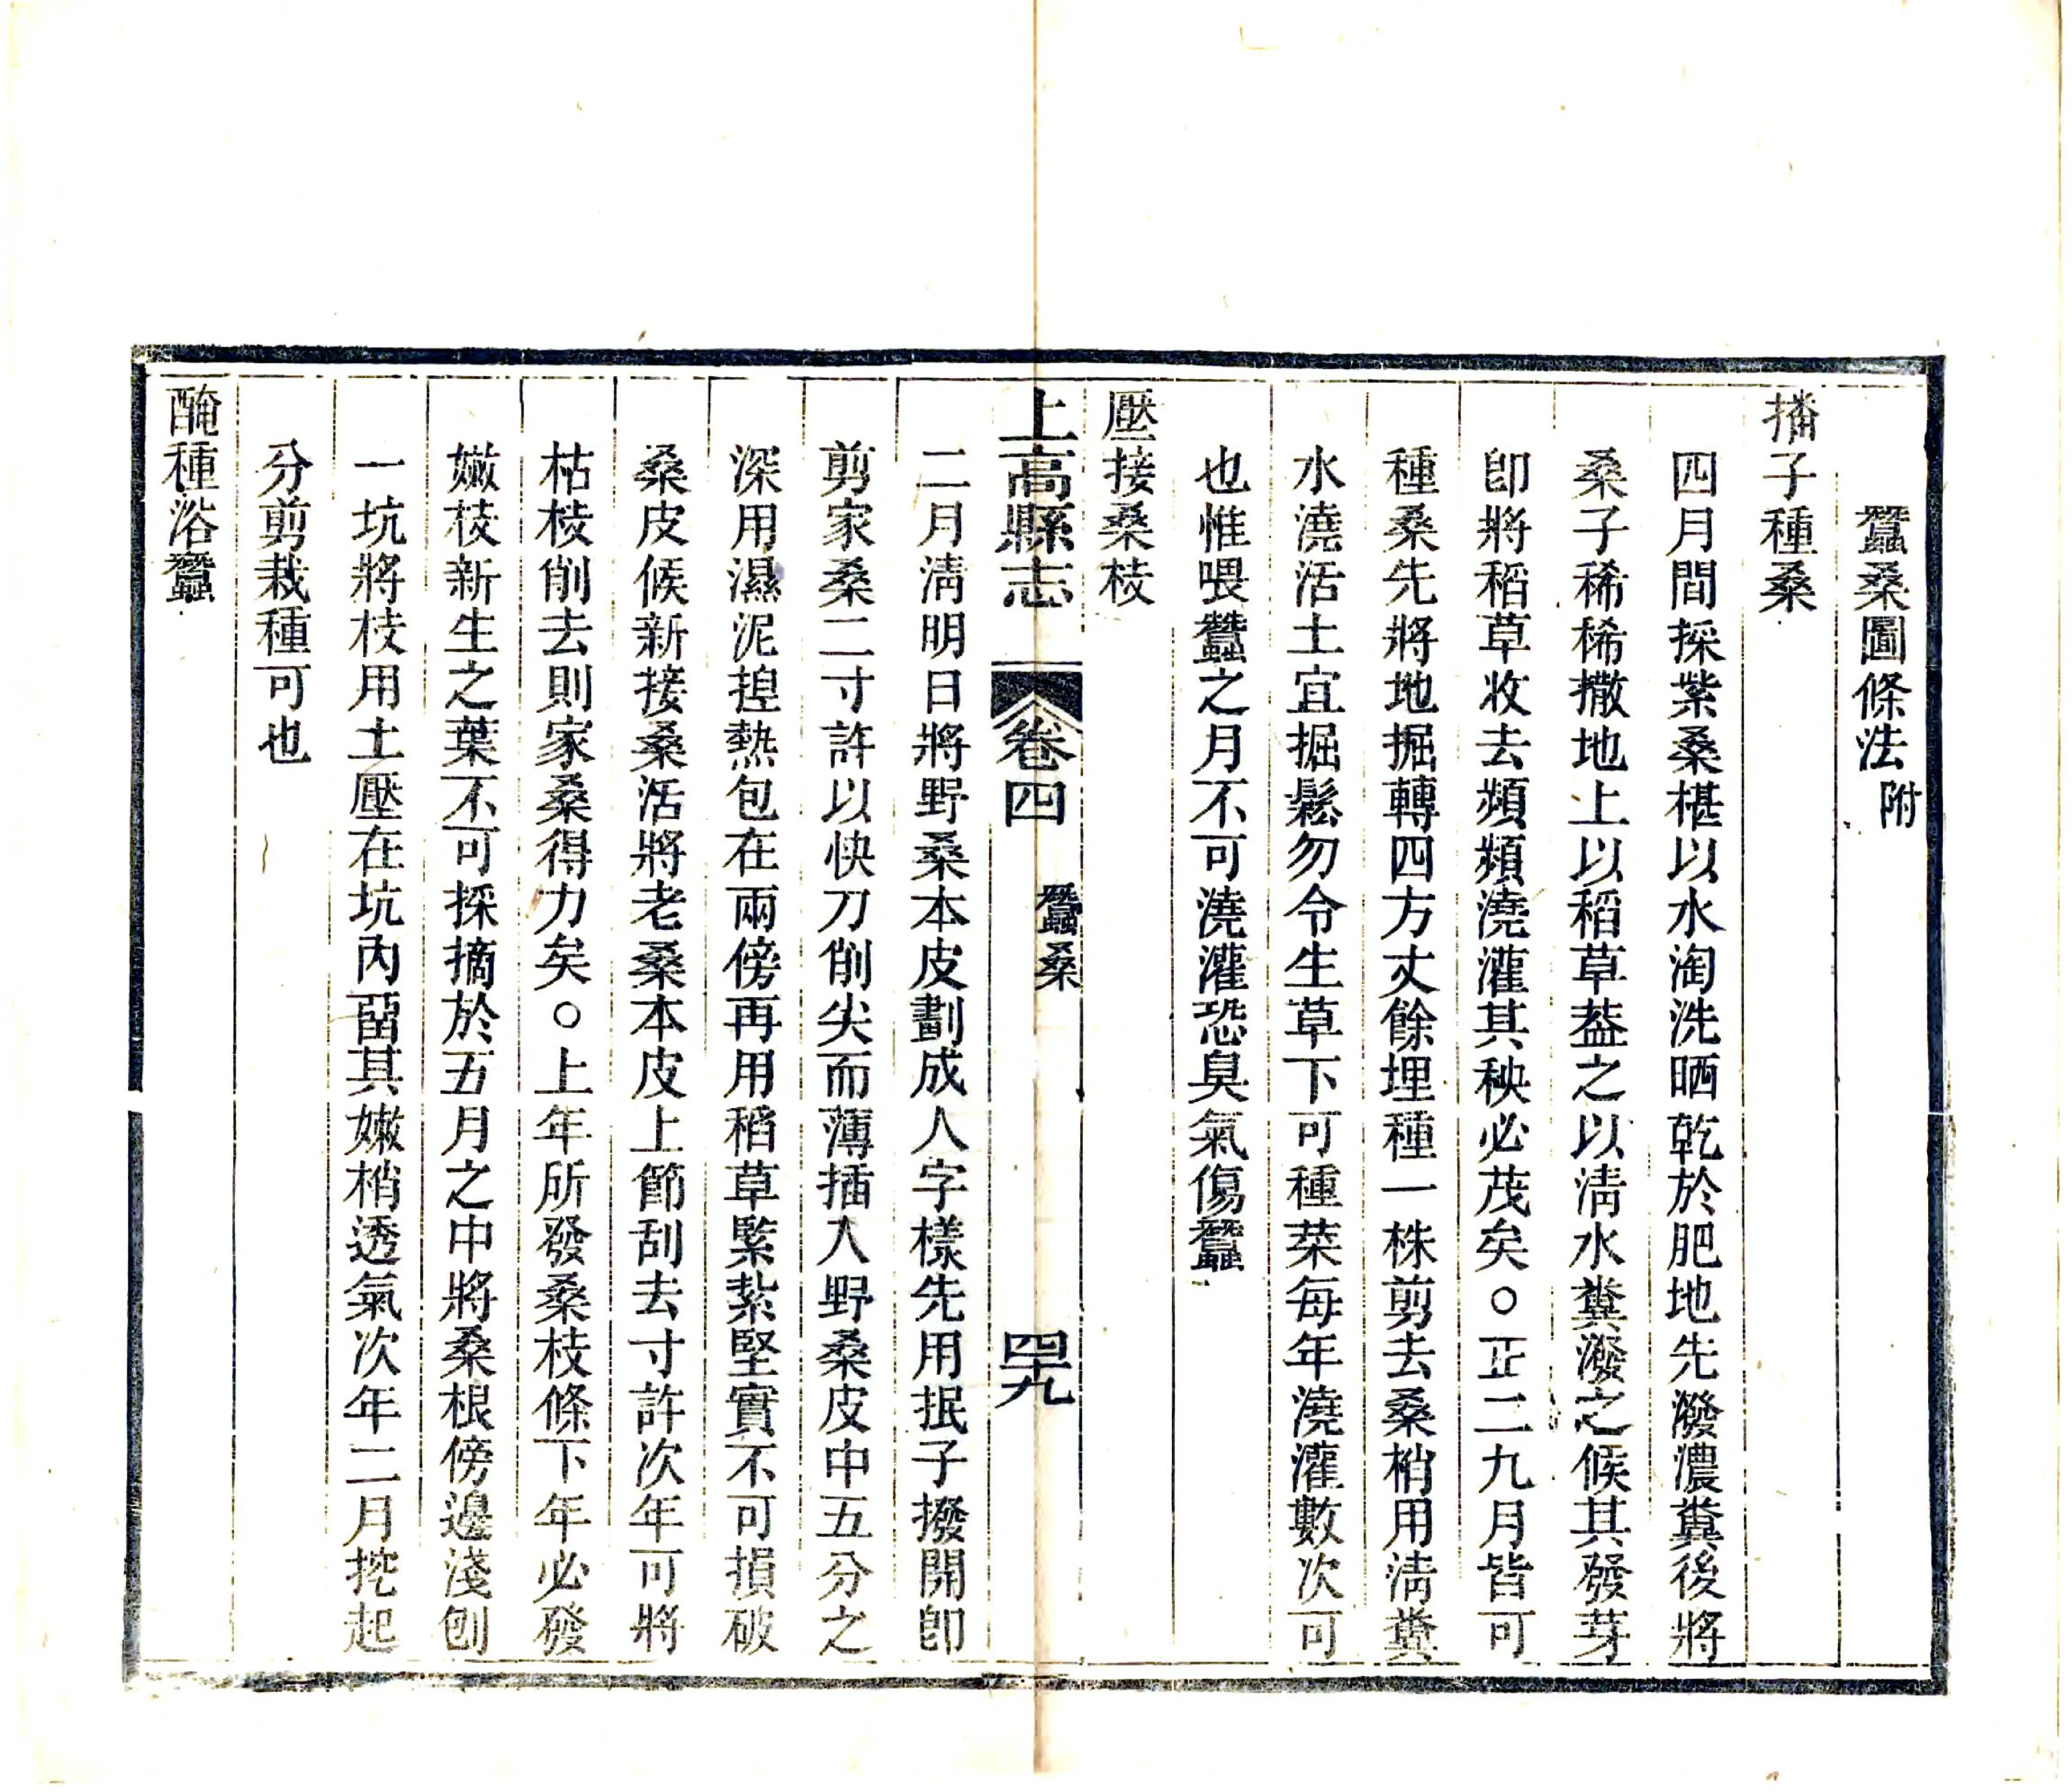 蠶桑圖條法附
播子種桑
四月間採紫桑椹以水淘洗晒乾於肥地先潑濃糞後將
桑子稀稀撒地上以稻草葢之以淸水糞潑之候其發芽
卽將稻草收去頻頻澆灌其秧必茂矣○正二九月皆可
種桑先將地掘轉四方丈餘埋種一株剪去桑梢用淸糞
水澆活土宜掘鬆勿令生草下可種菜每年澆灌數次可
也惟喂蠶之月不可澆灌恐臭氣傷蠶
壓接桑枝
上高縣志 卷四 蠶桑 四九
二月淸明日將野桑本皮劃成人字樣先用抿子撥開卽
剪家桑二寸許以快刀削尖而薄插入野桑皮中五分之
深用濕泥揑熱包在兩傍再用稻草緊紮堅實不可損破
桑皮候新接桑活將老桑本皮上節刮去寸許次年可將
枯枝削去則家桑得力矣○上年所發桑枝條下年必發
嫩枝新生之葉不可採摘於五月之中將桑根傍邊淺刨
一坑將枝用土壓在坑內畱其嫩梢透氣次年二月挖起
分剪栽種可也
醃種浴蠶